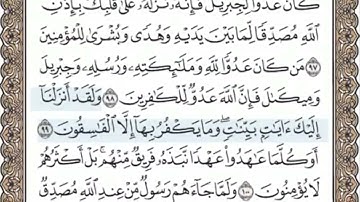 كَانَ عَدُوًّا لِّجِبْرِيلَ فَإِنَّهُۥ نَزَّلَهُۥ عَلَىٰ قَلْبِكَ بِإِذْنِ
ٱللَّهِ مُصَدِّقًا لِّمَا بَيْنَ يَدَيْهِ وَهُدًى وَبُشْرَىٰ لِلْمُؤْمِنِينَ
٩٧ مَن كَانَ عَدُوًّا لِّلَّهِ وَمَلَٰٓئِكَتِهِۦ وَرُسُلِهِۦ وَجِبْرِيلَ
وَمِيكَىٰلَ فَإِنَّ ٱللَّهَ عَدُوٌّ لِّلْكَٰفِرِينَ ٩٨ وَلَقَدْ أَنزَلْنَآ
إِلَيْكَ ءَايَٰتٍۭ بَيِّنَٰتٍ وَمَا يَكْفُرُ بِهَآ إِلَّا ٱلْفَٰسِقُونَ ٩٩
أَوَكُلَّمَا عَٰهَدُوا۟ عَهْدًا نَّبَذَهُۥ فَرِيقٌ مِّنْهُم بَلْ أَكْثَرُهُمْ
لَا يُؤْمِنُونَ ١٠٠ وَلَمَّا جَآءَهُمْ رَسُولٌ مِّنْ عِندِ ٱللَّهِ مُصَدِّقٌ